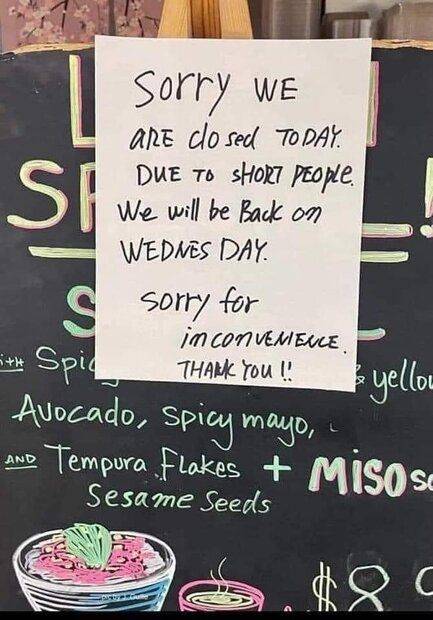 Sorry WE
ARE closed TODAY.
DUE TO SHORT PEOPLE.
We will be Back on
WEDNESDAY.
Sorry for
inconvENIENCE.
THANK YOU !!
Avocado, spicy mayo,
AND Tempura Flakes + MISO
Sesame Seeds